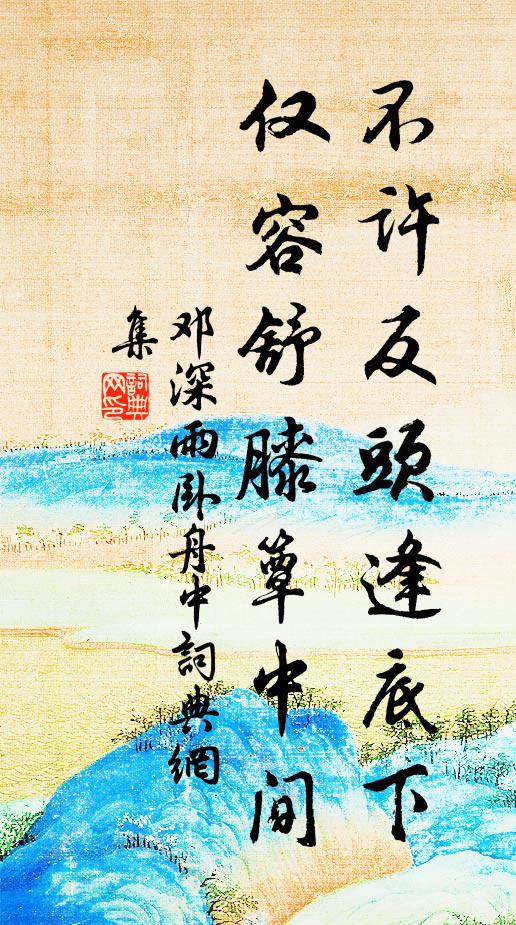 不许反頭逢底下
仅容舒膝簟中间
邓深雨卧舟中詞典網
集
詞典
网印